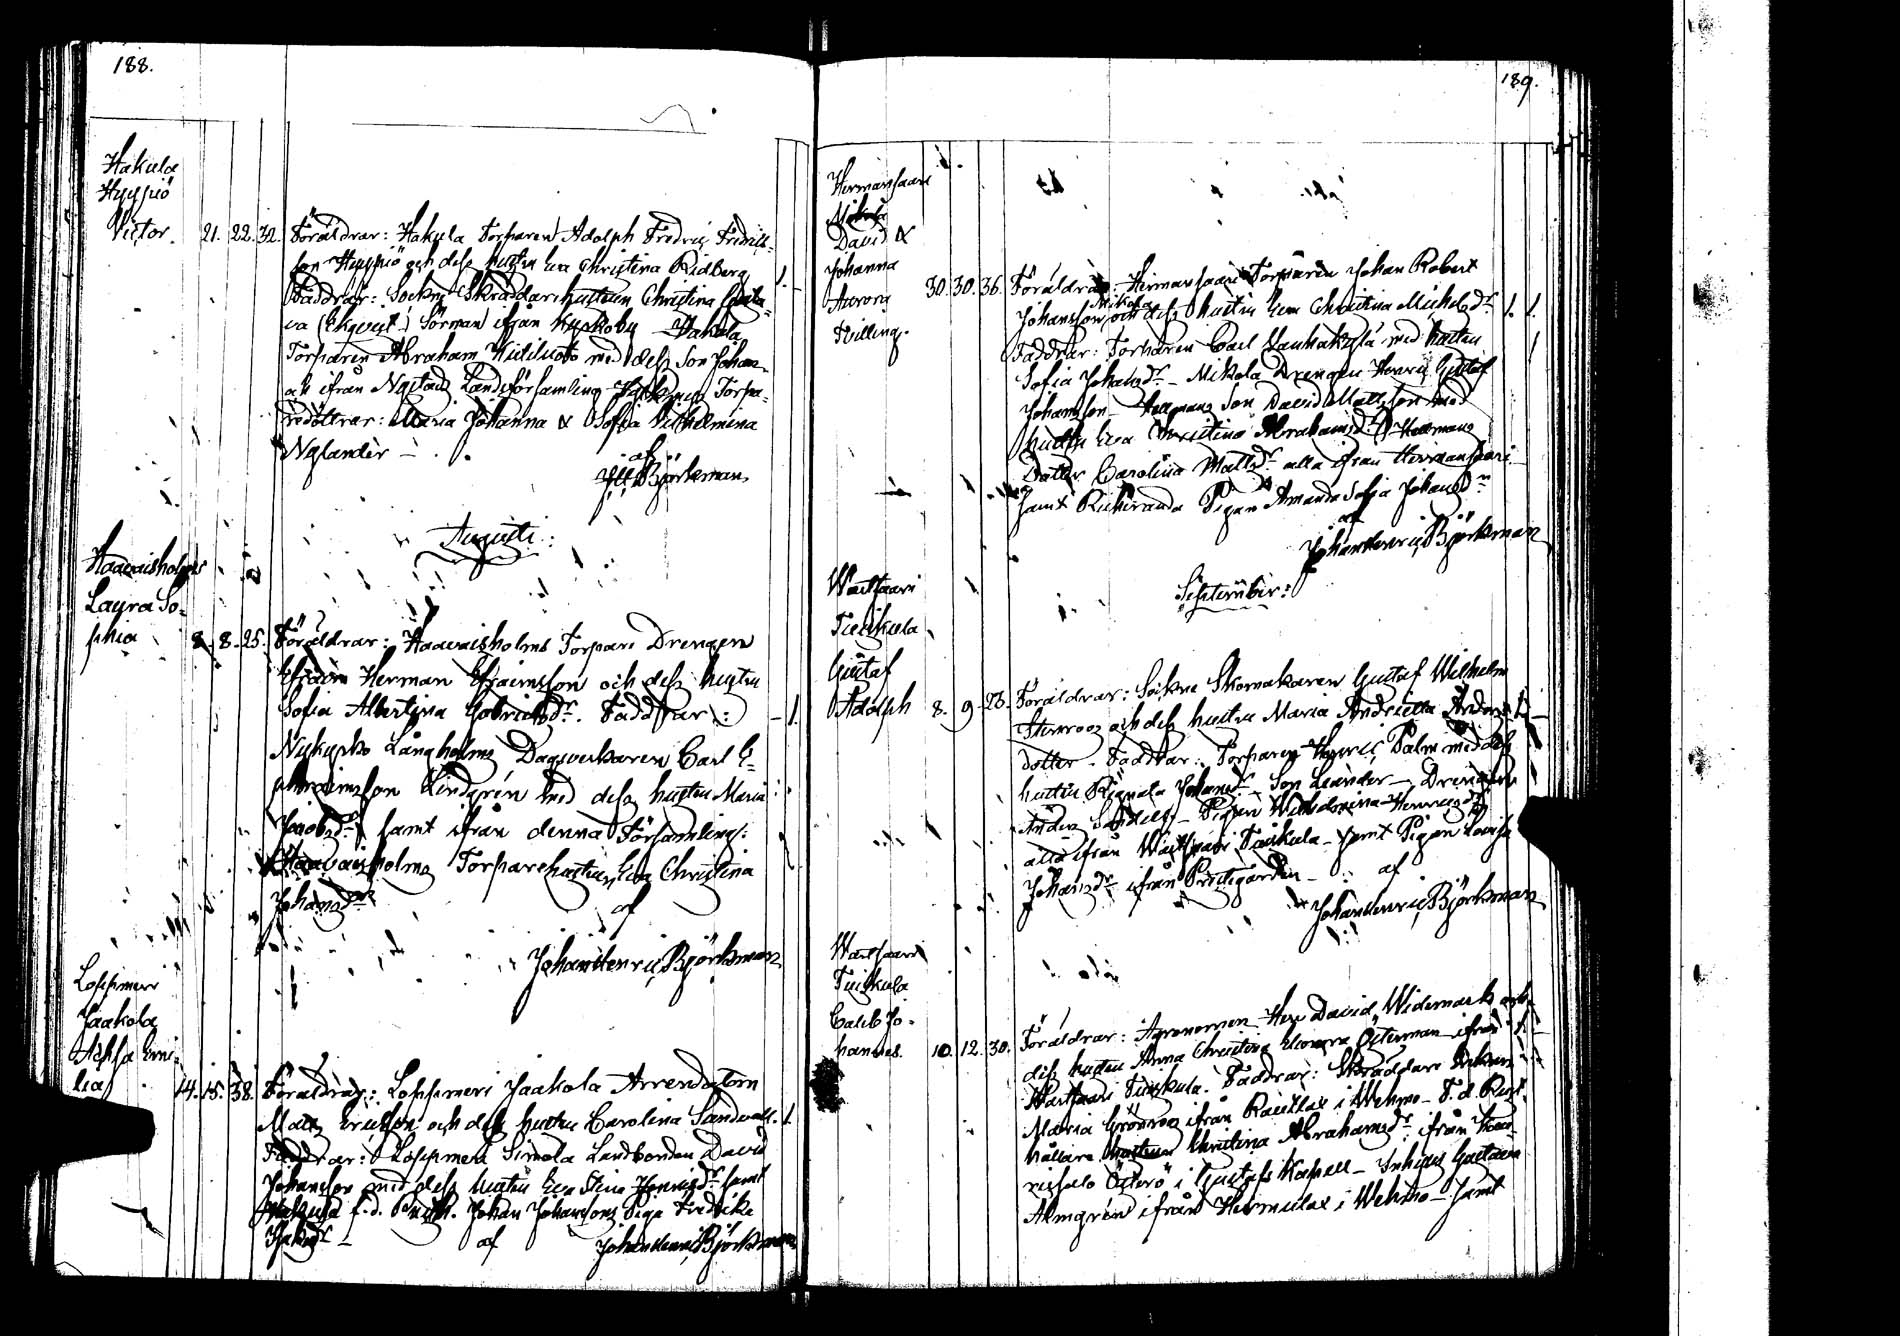 188.
Hakula
Hyypiö
Victor. 21. 22. 32. Föräldrar: Hakula Torparen Adolph Fredric Fredrics-
son Hyypiö och dess hustru Eva Christina Ridberg 1.
Faddrar: Sockne Skräddarehustrun Christina
(Ekqvist) Sörman ifrån Kyrkoby Hakula
Torparen Abraham med dess Son Johan
alla ifrån Nystads Landsförsamling Torpa-
redöttrar: Maria Johanna & Sofia Vilhelmina
Nylander
af
J. H. Björkman
Augusti:
Haavaisholms
Laura So-
phia 8. 8. 25. Föräldrar: Haavaisholms Torpare Drengen
Efraim Herman Efraimsson och dess hustru
Sofia Albertina Gabrielsdr. Faddrar: 1.
Nykyrko Långholms Dagsverkaren Carl E-
phraimsson Lindgrén med dess hustru Maria
Jacobsdr samt ifrån denna Församling:
Haavaisholms Torparehustrun Eva Christina
Johansdr
af
Johan Henric Björkman
Loppmeri
Jaakola
Adolfa Emi-
lia 14. 15. 38. Föräldrar: Loppmeri Jaakola Arrendatorn
Matts Ericsson och dess hustru Carolina Sandvall. 1.
Faddrar: Loppmeri Simola Landbonden David
Johansson med dess hustru Eva Stina Henricsdr samt
f.d. Johan Johanssons Piga Fredrika
af Johan Henric Björkman
189.
Hermansaari
Mikola
David &
Johanna
Aurora 30. 30. 36. Föräldrar: Hermansaari Torparen Johan Robert
Mikola
Johansson och dess hustru Eva Christina Michelsdr 1. 1.
Tvilling.
Faddrar: Torparen Carl Lauhakylä med hustru
Sofia Johansdr - Mikola Drengen Henric Gustaf
Johansson - Hellmans Son David Mattsson med
hustru Eva Christina Abrahamsdr Hellmans
Dotter Carolina Mattsdr alla ifrån Hermansaari
samt Pigan Amanda Sofia Johansdr
af
Johan Henric Björkman
September:
Wartsaari
Tuiskula
Gustaf
Adolph 8. 9. 23. Föräldrar: Sockne Skomakaren Gustaf Wilhelm
Stenroos och dess hustru Maria Andrietta Anders- 1.
dotter. Faddrar: Torparen Henric Palm med dess
hustru Johansdr - Son Leander - Drengen
Anders - Pigan Wilhelmina Henricsdr
alla ifrån Wartsaari Tuiskula - samt Pigan Lovisa
Johansdr ifrån Prestgården - af
Johan Henric Björkman
Wartsaari
Tuiskula
Caleb Jo-
hannes. 10. 12. 30. Föräldrar: Agronomen Herr David Widemark och
dess hustru Anna Christina Eleonora Österman ifrån 1.
Wartsaari Tuiskula. Faddrar: Skräddare Enkan
Maria Grönroos ifrån Rautila i Wehmo - F. d. Rust-
hållare hustrun Christina Abrahamsdr ifrån
Österö i Gustafs Kapell - Gustava
Almgrén ifrån Hirmula i Wehmo - samt